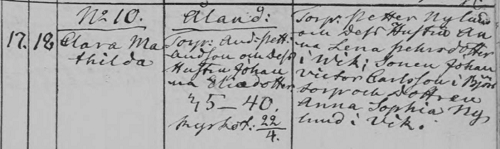 No 10.
17. 18. Clara Ma
thilda
Åland:
Torp: And: Pett:
Andson och Dess
Hustru Johan
na Elisdotter
35-40.
Kyrkot: 22/4.
Torp: Petter Nylund
och Dess Hustru An
na Lena Pehrsdotter
i Wik; Sonen Johan
Victor Carlsson i Björs
torp och Dottren
Anna Sophia Ny
lund i Vik.